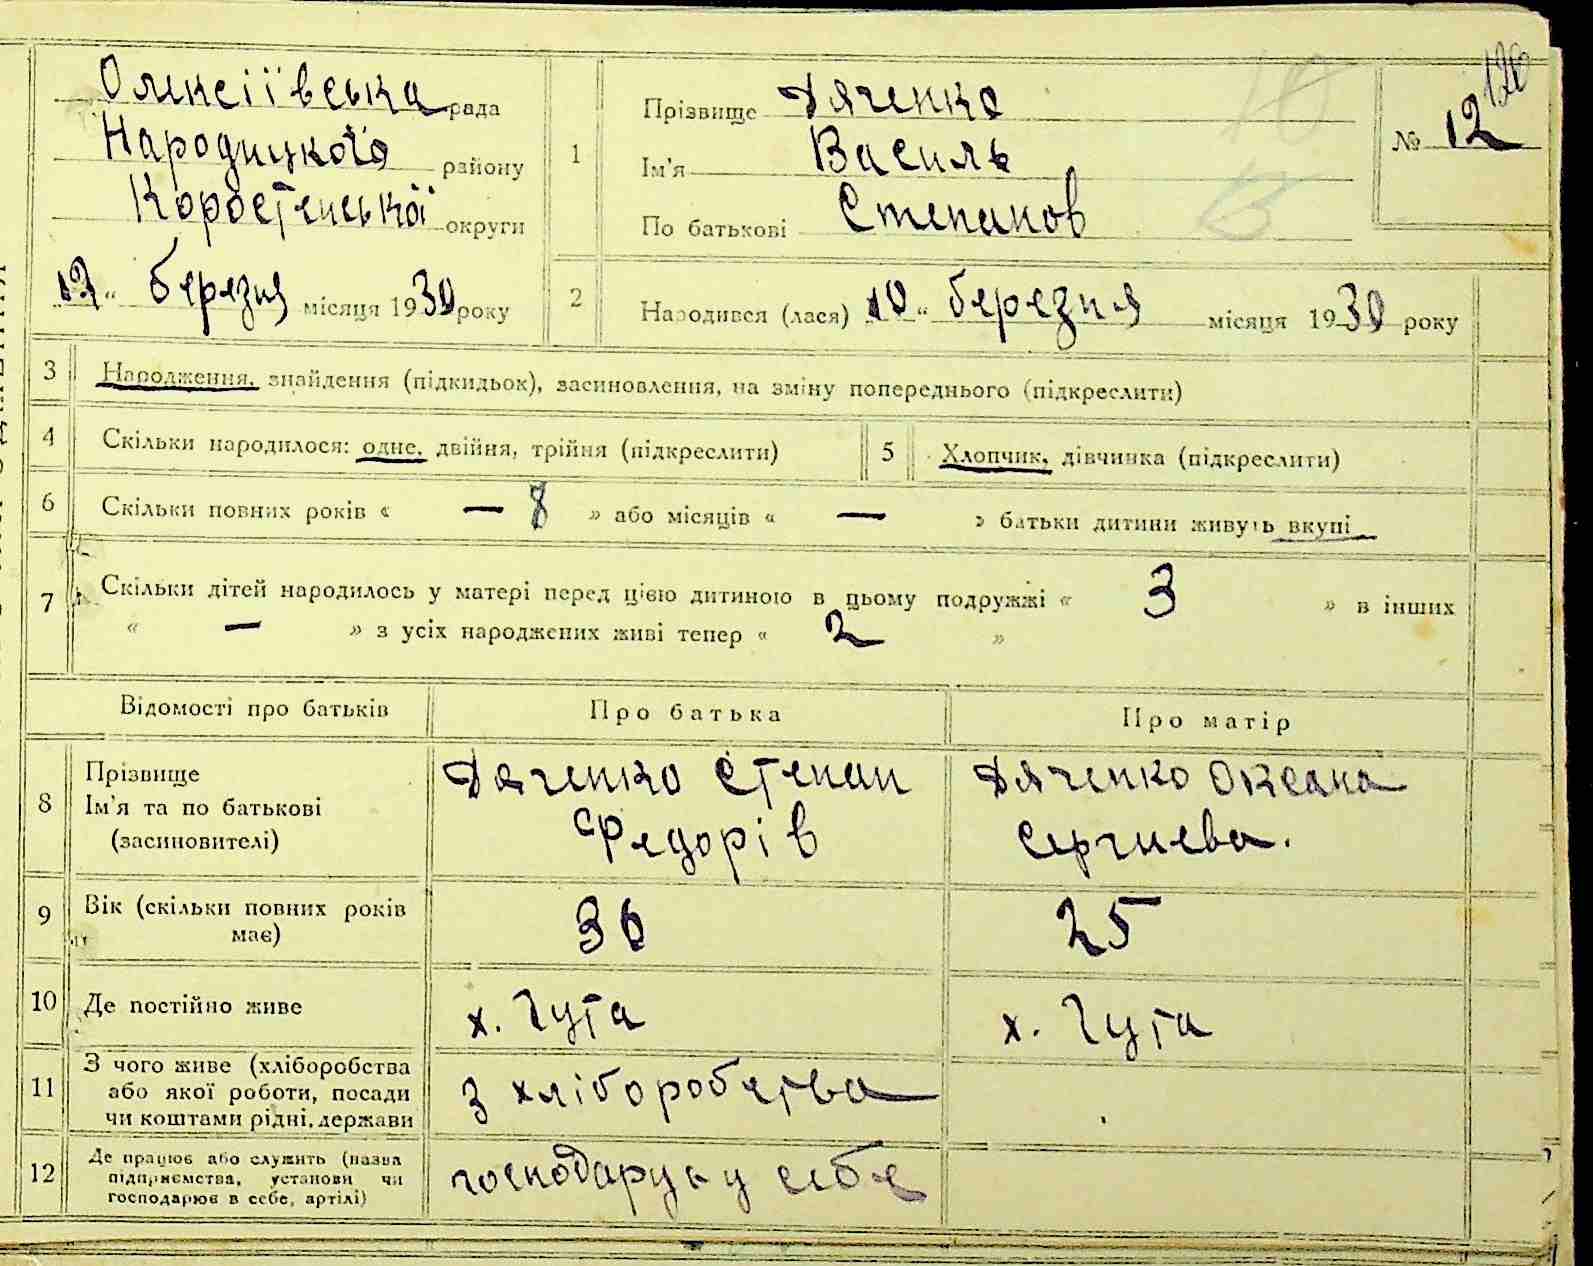 Олексіївська рада
Народицького району
Коростенської округи
12 " березня місяця 1930 року
1
Прізвище Дяченко
Ім'я Василь
По батькові Степанов
№ 12
120
2
Народився (лася) 10 " березня місяця 1930 року
3 Народження, знайдення (підкидьок), засиновлення, на зміну попереднього (підкреслити)
4 Скільки народилося: одне, двійня, трійня (підкреслити)
5 Хлопчик, дівчинка (підкреслити)
6 Скільки повних років « — 8 » або місяців « — » батьки дитини живуть вкупі
7 Скільки дітей народилось у матері перед цією дитиною в цьому подружжі « 3 » в інших
« — » з усіх народжених живі тепер « 2 »
Відомості про батьків Про батька Про матір
8
Прізвище
Ім'я та по батькові
(засиновителі)
Дяченко Степан
Федорів
Дяченко Оксана
Сергиева.
9
Вік (скільки повних років
має)
36
25
10 Де постійно живе х. Гута х. Гута
11
З чого живе (хліборобства
або якої роботи, посади
чи коштами рідні, держави
з хліборобства
12
Де працює або служить (назва
підприємства, установи чи
господарює в себе, артілі)
господарує у себе